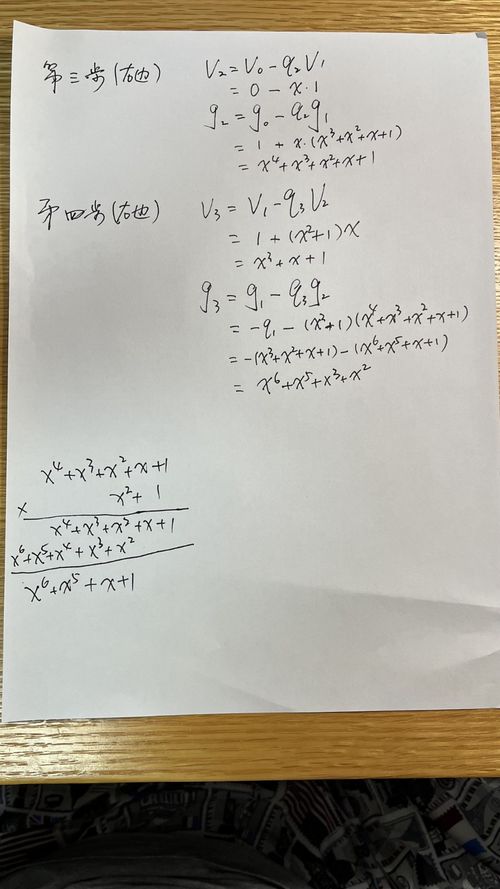 第三步(右边) V₂ = V₀ - q₂V₁
= 0 - x·1
g₂ = g₀ - q₂g₁
= 1 + x·(x³+x²+x+1)
= x⁴+x³+x²+x+1
第四步(右边) V₃ = V₁ - q₃V₂
= 1 + (x²+1)x
= x³ + x + 1
g₃ = g₁ - q₃g₂
= -q₁ - (x²+1)(x⁴+x³+x²+x+1)
= -(x³+x²+x+1) - (x⁶+x⁵+x+1)
= x⁶+x⁵+x³+x²
x⁴+x³+x²+x+1
× x²+1
x⁴+x³+x²+x+1
x⁶+x⁵+x⁴+x³+x²
x⁶+x⁵+x+1